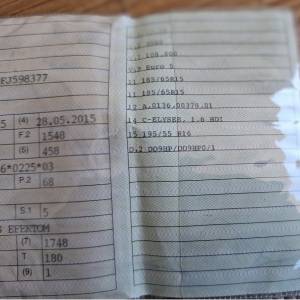 FJ598377
5 (4) 28.05.2015
F.2 1548
(5) 458
6*0225*03
P.2 68
S.1 5
S EFEKTOM
(7) 1748
T 180
(9) 1
Euro 5
11 185/65R15
11 185/65R15
12 A.0136.00379.01
14 C-ELYSEE, 1.6 HDI
15 195/55 R16
D.2 DD9HP/DD9HP0/1